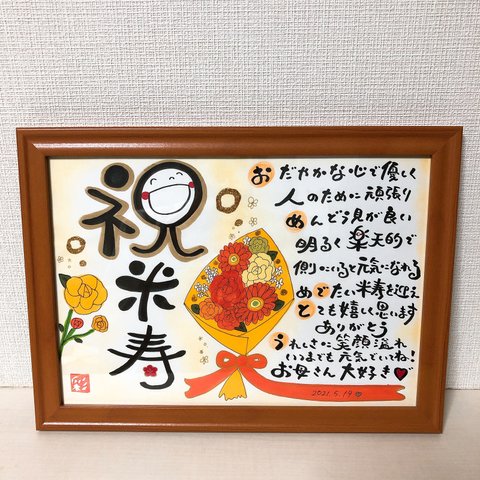 祝
米寿
おだやかな心で優しく
人のために頑張り
めんどう見が良い
明るく楽天的で
側にいると元気になれる
めでたい米寿を迎え
とても嬉しい思います
ありがとう
うれしさに笑顔溢れ
いつまでも元気でいてね!
お母さん大好き♥で
2021.5.19